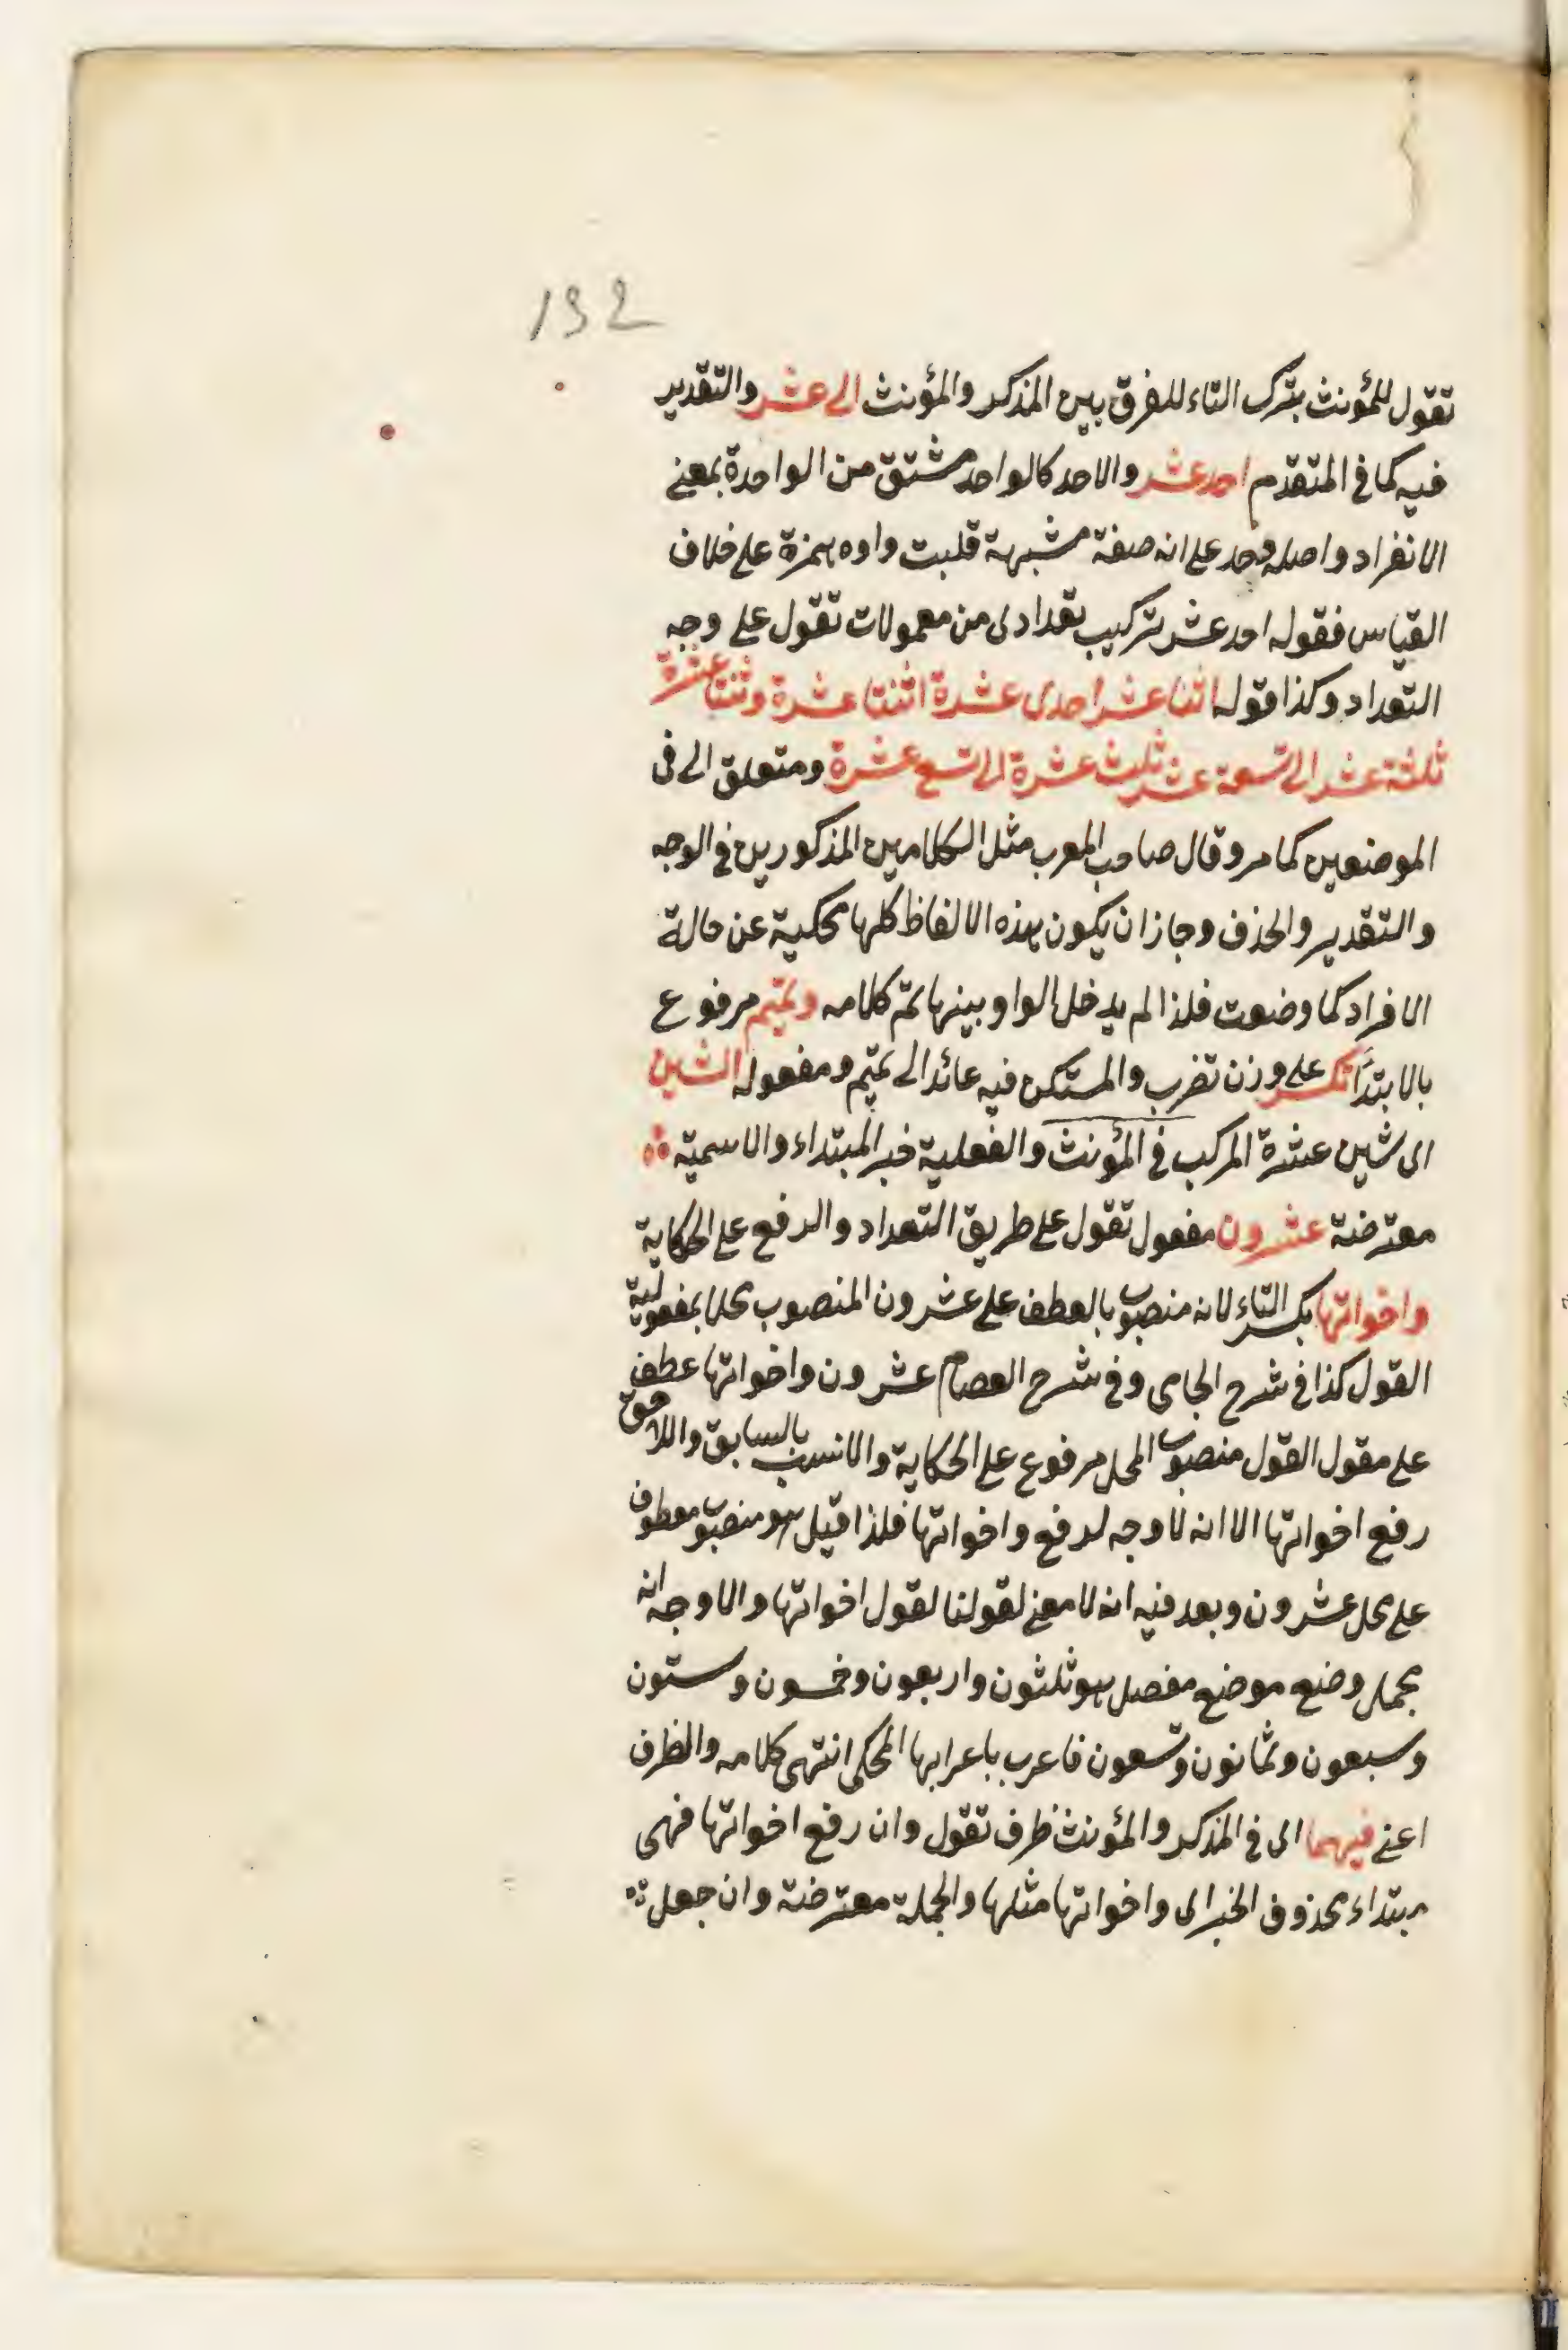 132
تقول للمؤنث بترك التاء للفرق بين المذكر والمؤنث الى عشر والتقدير
فيه كما في المتقدم احد عشر والاحد كالواحد مشتق من الواحدة بمعنى
الانفراد واصله وحد على انه صفة مشبهة قلبت واوه همزة على خلاف
القياس فقوله احد عشر تركيب تعدادى من معمولات تقول على وجه
التعداد وكذا قوله اثنا عشر احدى عشرة اثنتا عشرة وثنتا عشرة
ثلثة عشر الى تسعة عشر ثلث عشرة الى تسع عشرة ومتعلق الى فى
الموضعين كما مر وقال صاحب المعرب مثل الكلامين المذكورين في الوجه
والتقدير والحذف وجاز ان يكون هذه الالفاظ كلها محكية عن حالة
الافراد كما وضعت فلذا لم يدخل الواو بينها تم كلامه وتميم مرفوع
بالابتدأ تكسر على وزن تضرب والمستكن فيه عائد الى تميم ومفعوله الشين
اى شين عشرة المركب في المؤنث والفعلية خبر المبتداء والاسمية
معترضة عشرون مفعول تقول على طريق التعداد والرفع على الحكاية
واخواتها بكسر التاء لانه منصوب بالعطف على عشرون المنصوب محلا بمفعولية
القول كذا في شرح الجامى وفى شرح العصام عشرون واخواتها عطف
على مقول القول منصوب المحل مرفوع على الحكاية والانسب بالسابق واللاحق
رفع اخواتها الا انه لا وجه لرفع واخواتها فلذا قيل هو منصوب معطوف
على محل عشرون وبعد فيه انه لا معنى لقولنا لقول اخواتها والاوجه انه
مجمل وضع موضع مفصل هو ثلثون واربعون وخمسون وستون
وسبعون وثمانون وتسعون فاعرب باعرابها المحكى انتهى كلامه والظرف
اعنى فيهما اى في المذكر والمؤنث ظرف تقول وان رفع اخواتها فهى
مبتداء محذوف الخبر اى واخواتها مثلها والجملة معترضة وان جعل